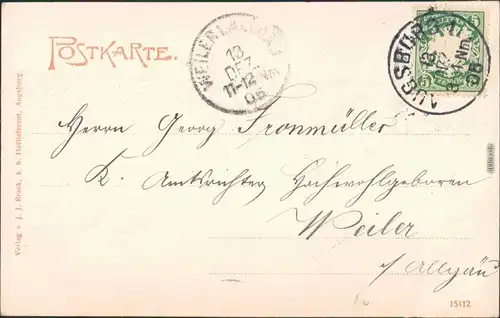 POSTKARTE.
WEILER i. ALLGÄU
13
DEZ.
11-12 Vm
06
AUGSBURG
5
Herrn Georg Fronmüller
K. Amtsrichter Hochwohlgeboren
Weiler
i/ Allgäu
Verlag v. J. J. Brack, k. b. Hoflieferant, Augsburg.
15112